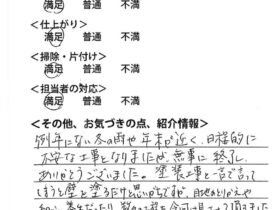 満足 普通 不満
<仕上がり>
満足 普通 不満
<掃除・片付け>
満足 普通 不満
<担当者の対応>
満足 普通 不満
<その他、お気づきの点、紹介情報>
例年にない冬の雨や年末が近く、日程的に
不安な工事となりましたが、無事に終了し、
ありがとうございました。塗装工事と一言で言って
しまうと壁を塗るだけと思いがちですが、